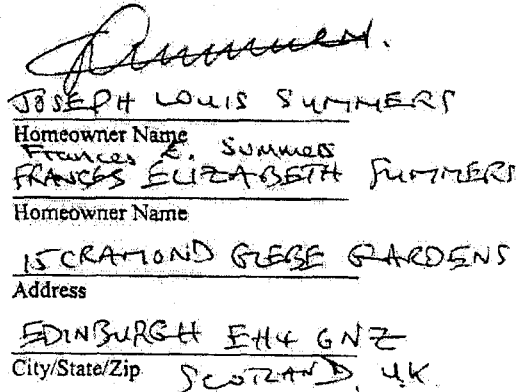 JOSEPH LOUIS SUMMERS
Homeowner Name
Frances E. Summers
FRANCES ELIZABETH SUMMERS
Homeowner Name
15 CRAMOND GLEBE GARDENS
Address
EDINBURGH EH4 6NZ
City/State/Zip SCOTLAND, UK